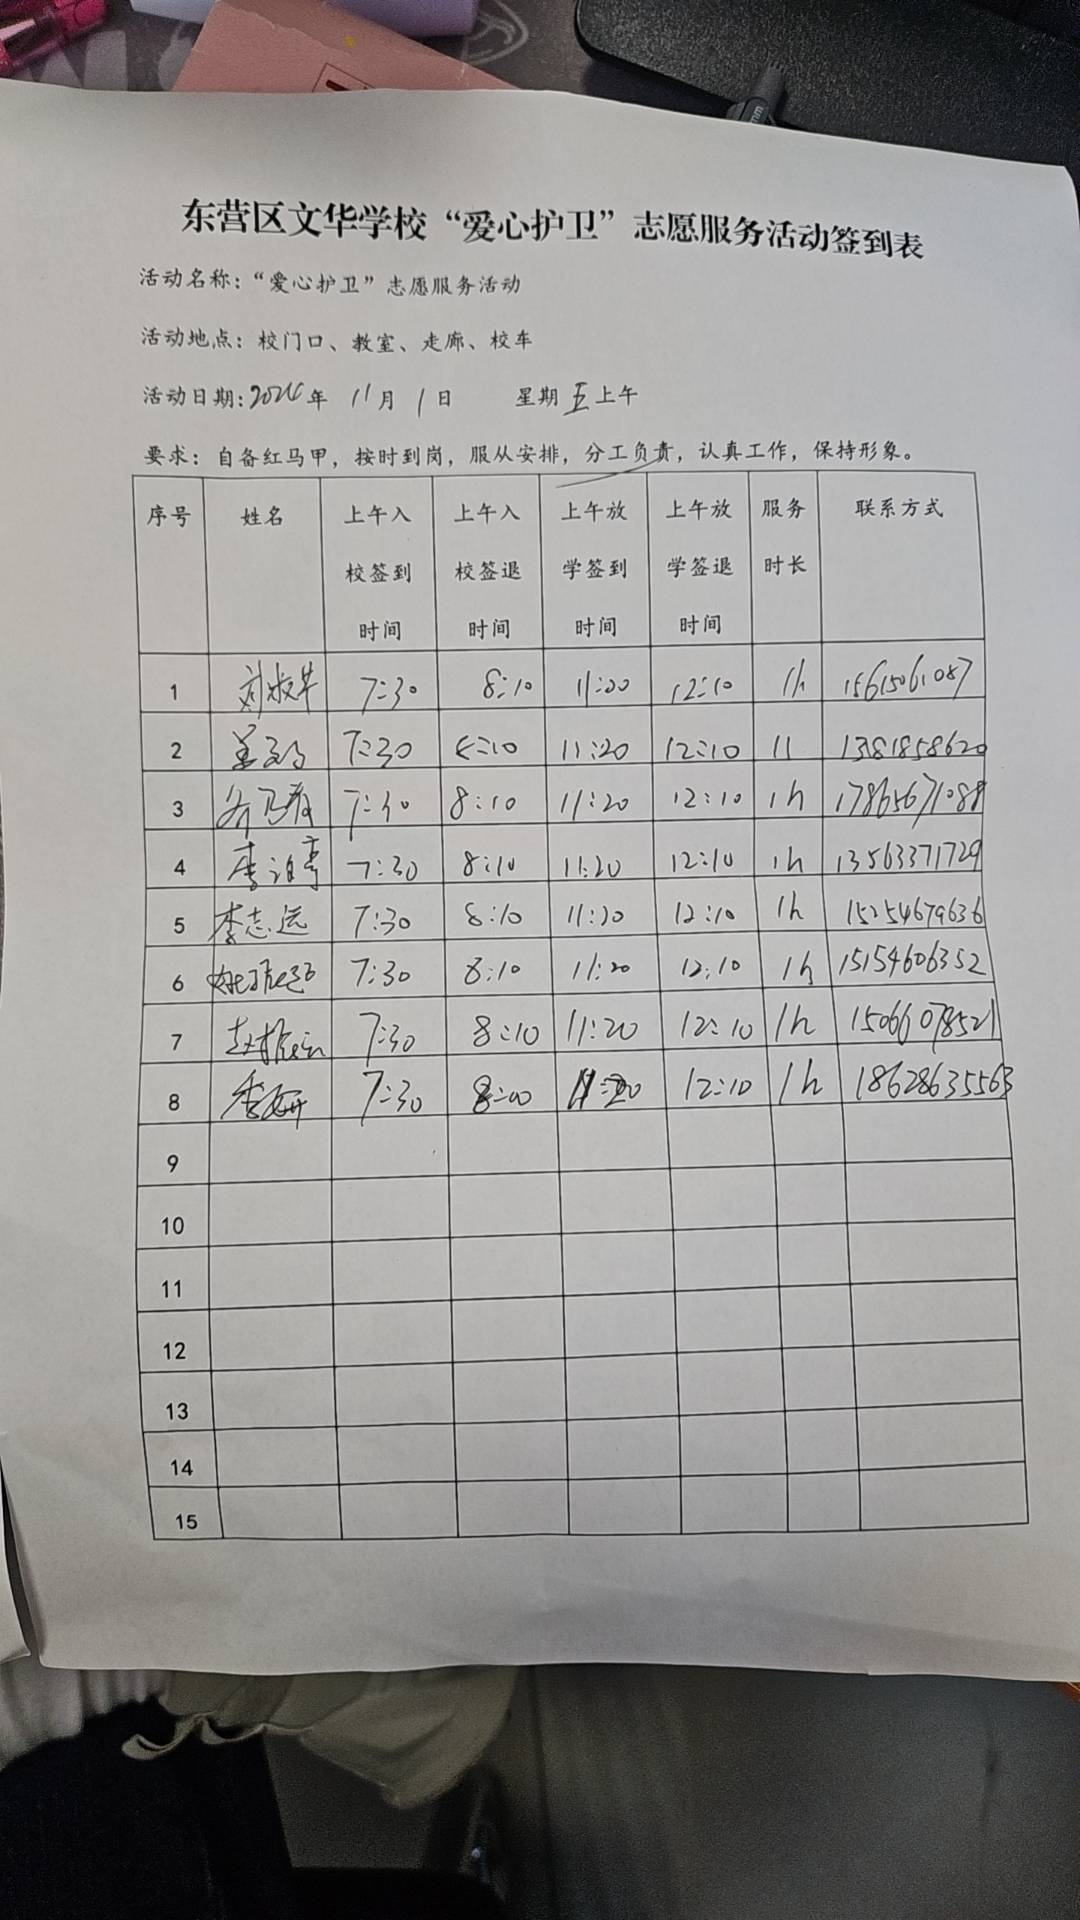 东营区文华学校“爱心护卫”志愿服务活动签到表
活动名称：“爱心护卫”志愿服务活动
活动地点：校门口、教室、走廊、校车
活动日期：2024年 11月 1日 星期五上午
要求：自备红马甲，按时到岗，服从安排，分工负责，认真工作，保持形象。
序号 姓名 上午入校签到时间 上午入校签退时间 上午放学签到时间 上午放学签退时间 服务时长 联系方式
1 7:30 8:10 11:20 12:10 1h 15615061087
2 7:30 8:10 11:20 12:10 13181858620
3 7:30 8:10 11:20 12:10 1h 17865671088
4 7:30 8:10 11:20 12:10 1h 13563371729
5 李志远 7:30 8:10 11:20 12:10 1h 15254679636
6 7:30 8:10 11:20 12:10 1h 15154606352
7 7:30 8:10 11:20 12:10 1h 15066078521
8 李妍 7:30 8:00 11:20 12:10 1h 18628635563
9
10
11
12
13
14
15